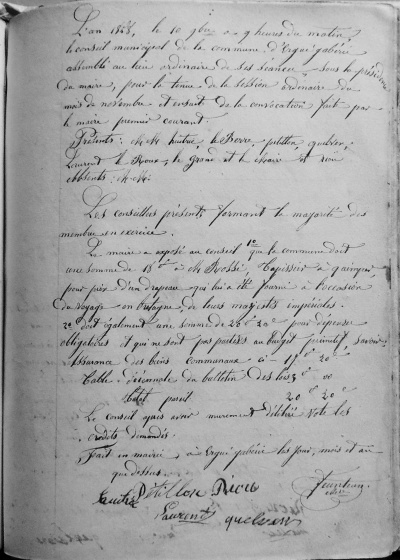 L'an 1858, le 10 9bre à 9 heures du matin,
le conseil municipal de la commune d'Ergué gabéric
assemblé au lieu ordinaire de ses séances sous la présidence
du maire, pour la tenue de la session ordinaire du
mois de novembre et ensuit de la convocation fait par
le maire premier courant.
Présents: M.M. le Berre, quelven,
Laurent le Roux, le Grand et non
absents: M.M.
Les conseillers présents formant la majorité des
membre en exercice.
Le maire a exposé au conseil 1o que la commune doit
une somme de 18f à M Rossi, tapissier à quimper,
pour prix d'un drapeau qui lui a été fourni à l'occasion
du voyage en bretagne, de leurs majestés impériales.
2o doit également une somme de 20f 20c pour dépenses
obligatoires et qui ne sont pas portées au budget primitif savoir
Assurance des biens communaux à - 20c
Table décennale du bulletin des lois 00
Total pareil 20f 20c
Le conseil après avoir murement délibéré vote les
crédits demandés.
Fait en mairie, à Ergué gabéric les jour, mois et an
que dessus.
Riou
Laurent quelven